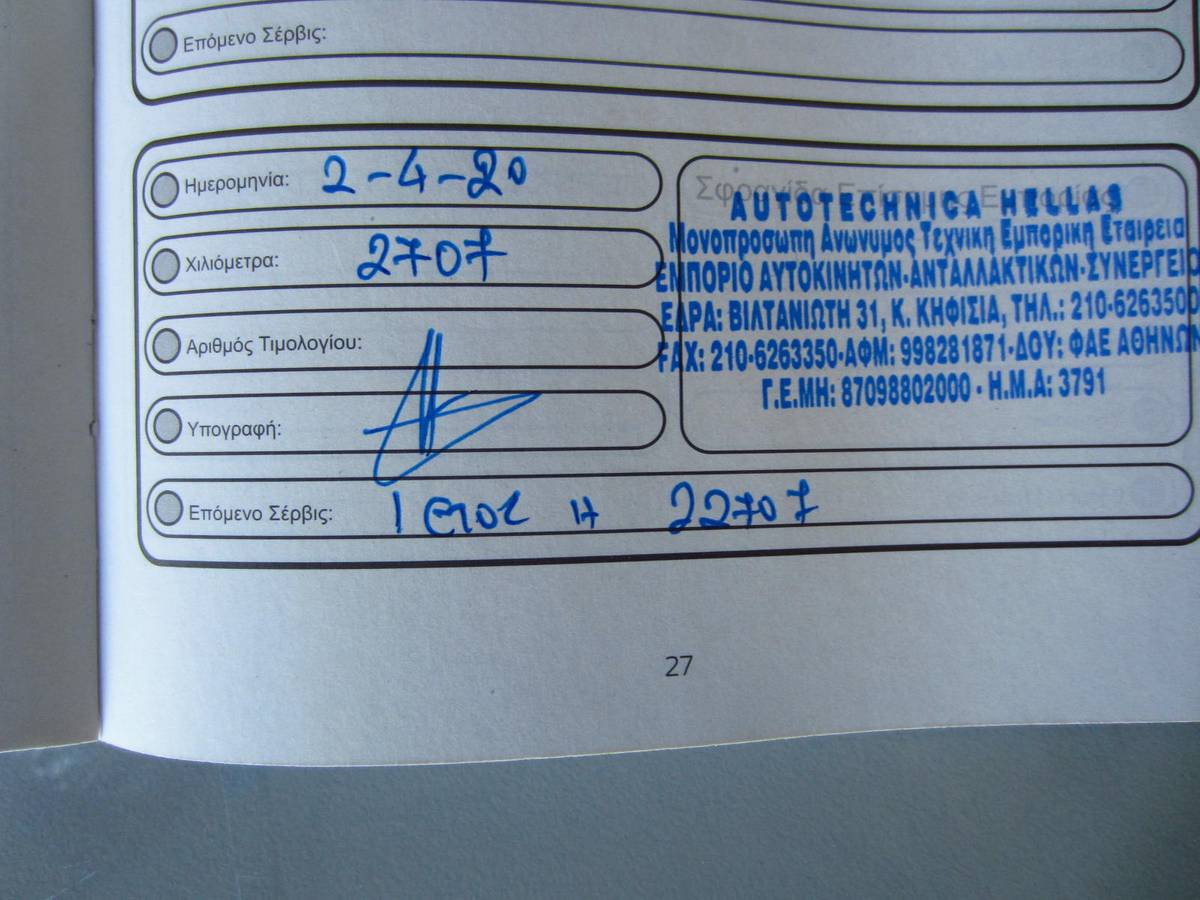 Επόμενο Σέρβις:
Ημερομηνία: 2-4-20
Χιλιόμετρα: 2707
Αριθμός Τιμολογίου:
Υπογραφή:
Επόμενο Σέρβις: 1 ετος η 22707
Σφραγίδα Επίσημης Εμπορίας
AUTOTECHNICA HELLAS
Μονοπροσωπη Ανωνυμος Τεχνικη Εμπορικη Εταιρεια
ΕΜΠΟΡΙΟ ΑΥΤΟΚΙΝΗΤΩΝ-ΑΝΤΑΛΛΑΚΤΙΚΩΝ-ΣΥΝΕΡΓΕΙΟ
ΕΔΡΑ: ΒΙΛΤΑΝΙΩΤΗ 31, Κ. ΚΗΦΙΣΙΑ, ΤΗΛ.: 210-6263500
FAX: 210-6263350-ΑΦΜ: 998281871-ΔΟΥ: ΦΑΕ ΑΘΗΝΩΝ
Γ.Ε.ΜΗ: 87098802000 - Η.Μ.Α: 3791
27